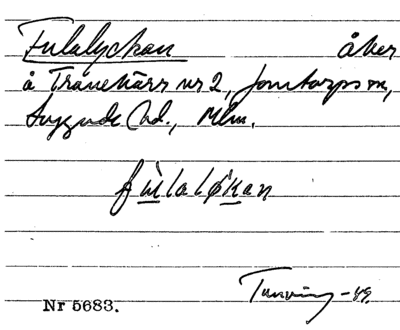 Fulalyckan åker
å Tranekärr nr 2, Jonstorps sn,
Luggude hd., Mlm.
fùlaløkan
Tunving -49.
Nr 5683.